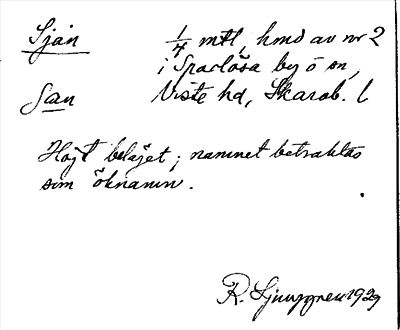 Sjån 1/4 mtl, hmd av nr 2
i Sparlösa by o sn,
San Viste hd, Skarab. l
Högt beläget; namnet betraktas
som öknamn.
R. Ljunggren 1929